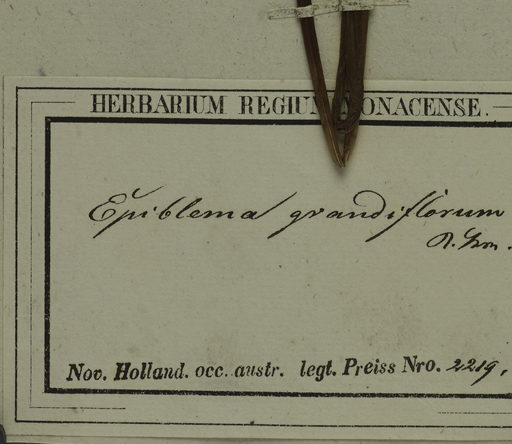 HERBARIUM REGIUM MONACENSE.
Epiblema grandiflorum
R. Brn.
Nov. Holland. occ. austr. legt. Preiss Nro. 2219.